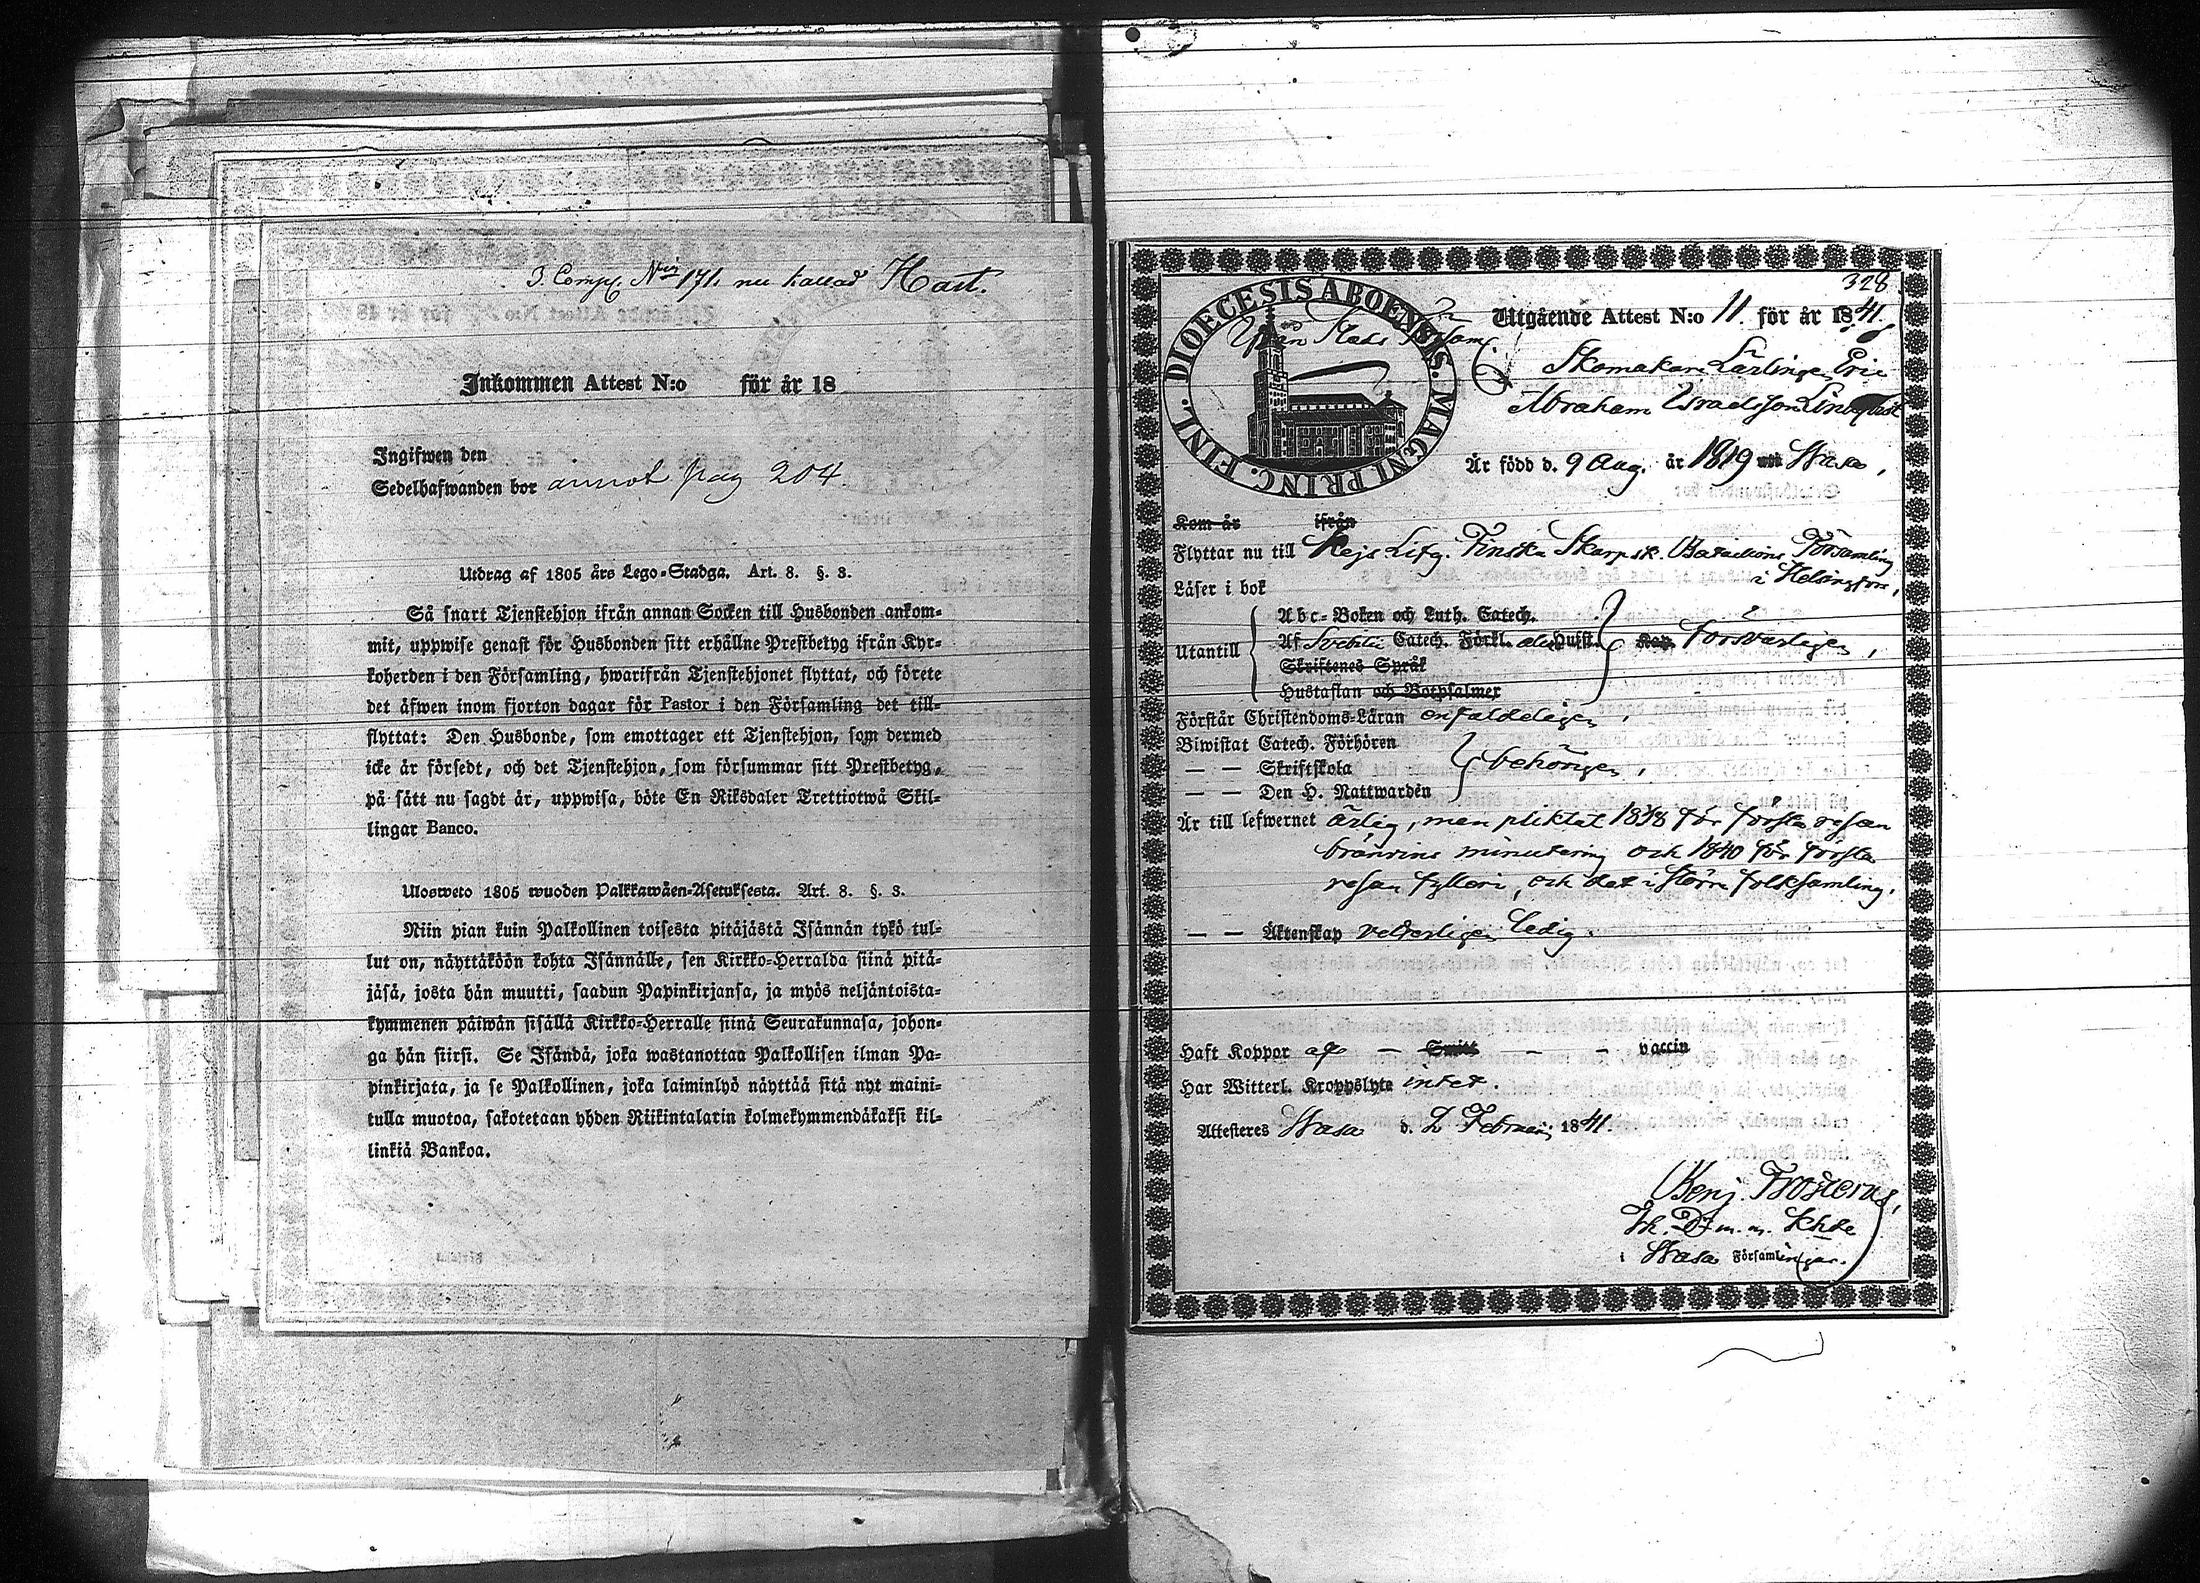 3. Comp. N:o 171. nu kallad Hart.
Inkommen Attest N:o för år 18
Ingifwen den
Sedelhafwanden bor annot pag 204
Utdrag af 1805 års Lego-Stadga. Art. 8. §. 3.
Så snart Tjenstehjon ifrån annan Socken till Husbonden ankom-
mit, uppwise genast för Husbonden sitt erhållne Prestbetyg ifrån Kyr-
koherden i den Församling, hwarifrån Tjenstehjonet flyttat, och förete
det äfwen inom fjorton dagar för Pastor i den Församling det till-
flyttat: Den Husbonde, som emottager ett Tjenstehjon, som dermed
icke är försedt, och det Tjenstehjon, som försummar sitt Prestbetyg,
på sätt nu sagdt är, uppwisa, böte En Riksdaler Trettiotwå Skil-
lingar Banco.
Ulosweto 1805 wuoden Palkkawäen-Asetuksesta. Art. 8. §. 3.
Niin pian kuin Palkollinen toisesta pitäjästä Isännän tykö tul-
lut on, näyttäköön kohta Isännälle, sen Kirkko-Herralda siinä pitä-
jäsä, josta hän muutti, saadun Papinkirjansa, ja myös neljäntoista-
kymmenen päiwän sisällä Kirkko-Herralle siinä Seurakunnasa, johon-
ga hän siirsi. Se Isändä, joka wastanottaa Palkollisen ilman Pa-
pinkirjata, ja se Palkollinen, joka laiminlyö näyttää sitä nyt maini-
tulla muotoa, sakotetaan yhden Riikintalarin kolmekymmendäkaksi kil-
linkiä Bankoa.
328
DIOECESIS ABOENSIS. MAGNI PRINC. FINL.
Utgående Attest N:o 11. för år 1841.
Skomakare Lärlingen Eric
Abraham Israelsson Lindqvist
Är född d. 9 Aug. år 1819 Wasa,
Kom år ifrån
Flyttar nu till Kejs. Lifg. Finska Skarpsk. Bataillons Församling
i Helsingfors,
Läser i bok
Abc-Boken och Luth. Catech.
Utantill Af Svebilii Catech. Förkl. Husst. försvarligen,
Skriftenes Språk
Hustaflan och Botpsalmer
Förstår Christendoms-Läran enfaldeligen,
Biwistat Catech. Förhören
— — Skriftskola behörigen,
— — Den H. Nattwarden
Är till lefwernet ärlig, men pliktat 1838 för första resan
brännvins minutering och 1840 för första
resan fylleri, och det i större folksamling.
— — Äktenskap veterligen ledig.
Haft Koppor — Smitt — — vaccin
Har Witterl. Kroppslyte intet.
Attesteres Wasa d. 2 Februarii 1841.
Benj. Frosterus,
Th. D. m. m. Khde
i Wasa Församlingar.